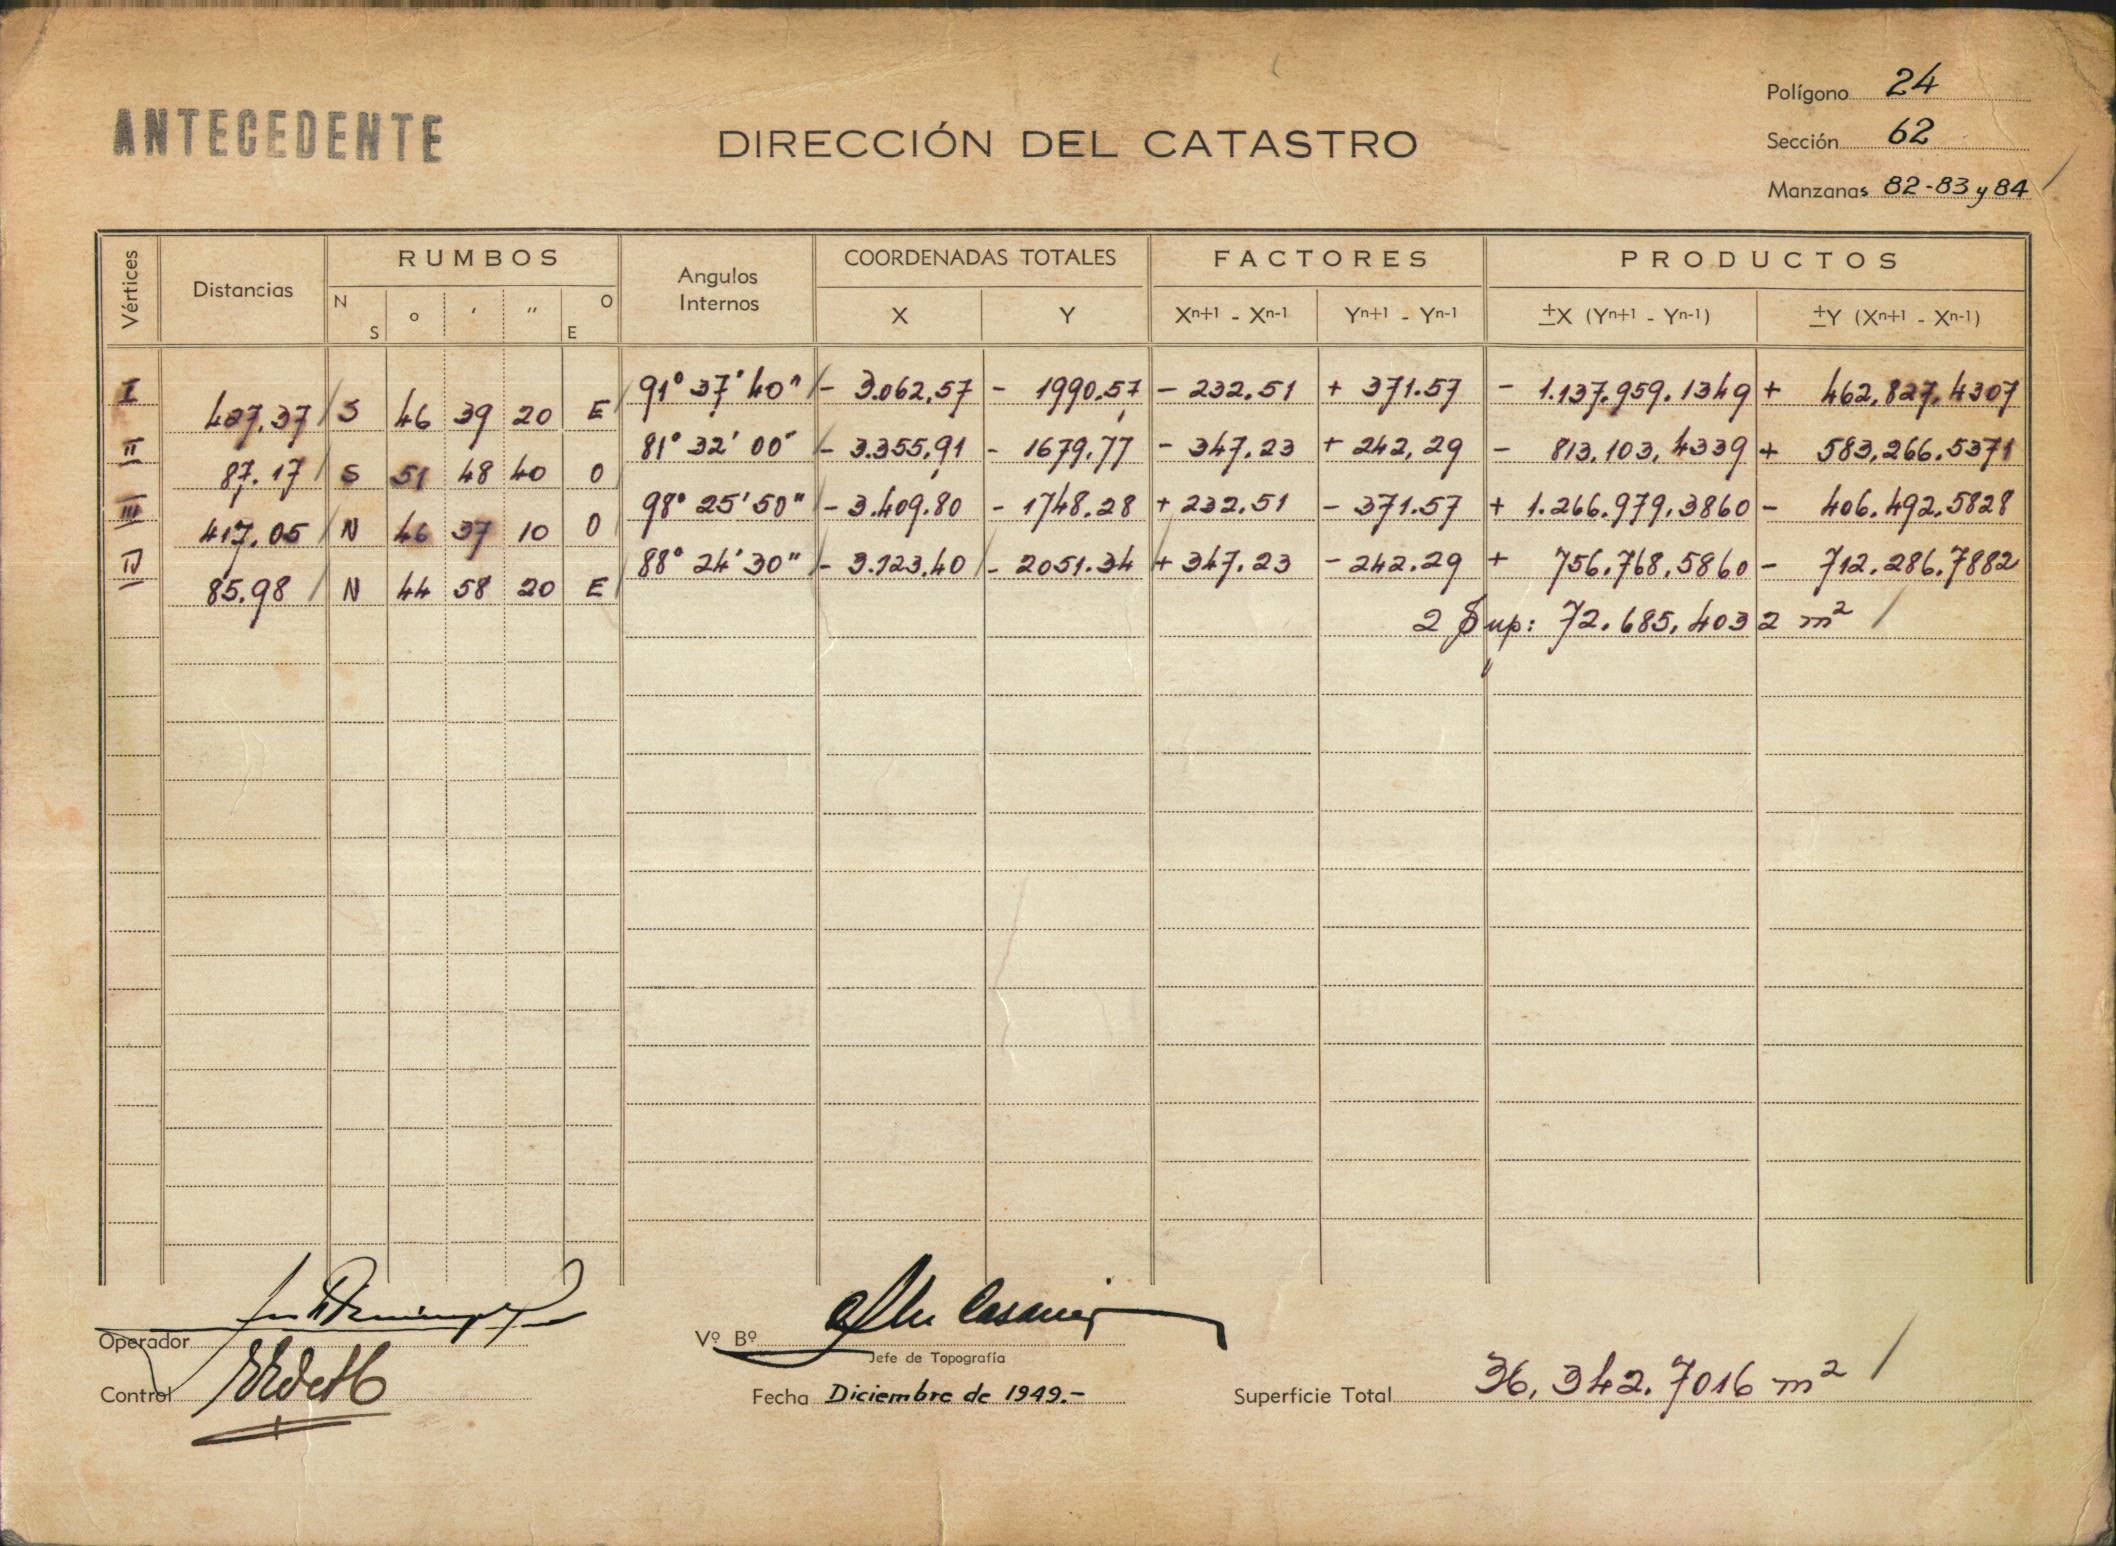 ANTECEDENTE
DIRECCIÓN DEL CATASTRO
Polígono 24
Sección 62
Manzanas 82-83 y 84
Vértices Distancias RUMBOS Angulos Internos COORDENADAS TOTALES FACTORES PRODUCTOS
N S o ' " O E X Y Xn+1 - Xn-1 Yn+1 - Yn-1 ±X (Yn+1 - Yn-1) ±Y (Xn+1 - Xn-1)
I 91° 37' 40" - 3.062,57 - 1990.57 - 232.51 + 371.57 - 1.137.959.1349 + 462.827.4307
427.37 S 46 39 20 E
II 81° 32' 00" - 3.355,91 - 1679,77 - 347.23 + 242,29 - 813.103,4339 + 583,266.5371
87.17 S 51 48 40 O
III 98° 25' 50" - 3.409.80 - 1748.28 + 232.51 - 371.57 + 1.266.979,3860 - 406.492.5828
417.05 N 46 37 10 O
IV 88° 24' 30" - 3.123.40 - 2051.34 + 347.23 - 242.29 + 756.768,5860 - 712.286.7882
85.98 N 44 58 20 E
2 Sup: 72.685,4032 m²
Operador
Control
Vº Bº
Jefe de Topografía
Fecha Diciembre de 1949.-
Superficie Total 36,342.7016 m²